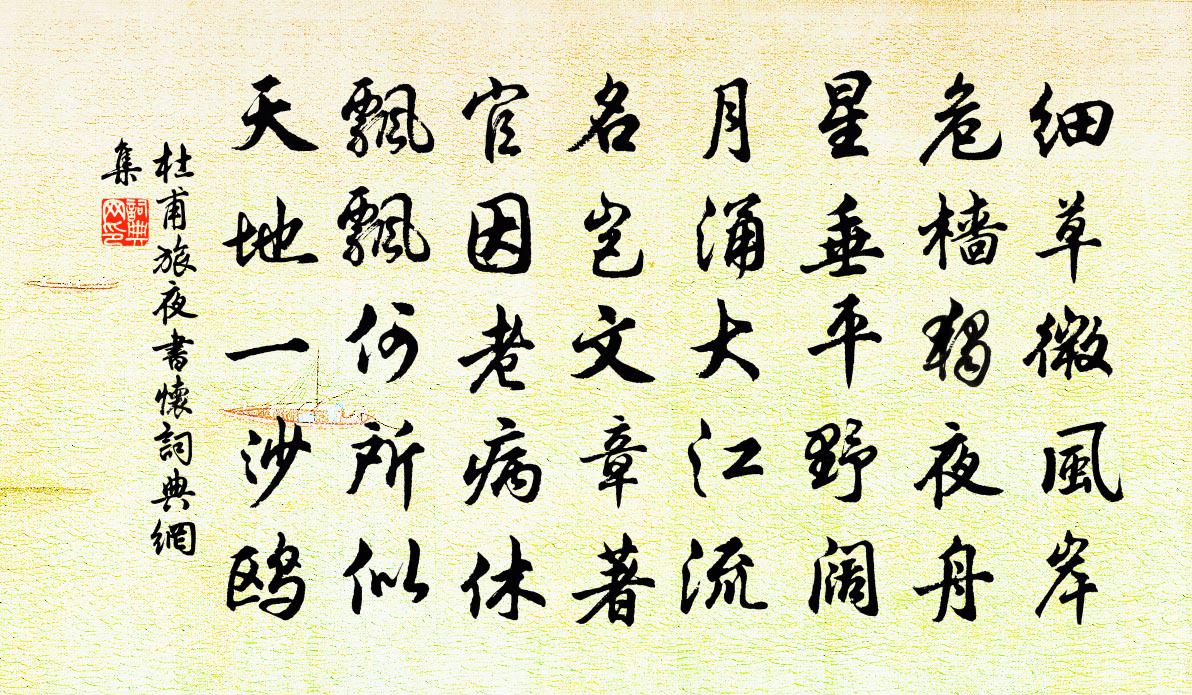 细草微風岸
危樯獨夜舟
星垂平野阔
月涌大江流
名岂文章著
官因老病休
飄飄何所似
天地一沙鸥
杜甫旅夜書懷詞典網
集
詞典
网印